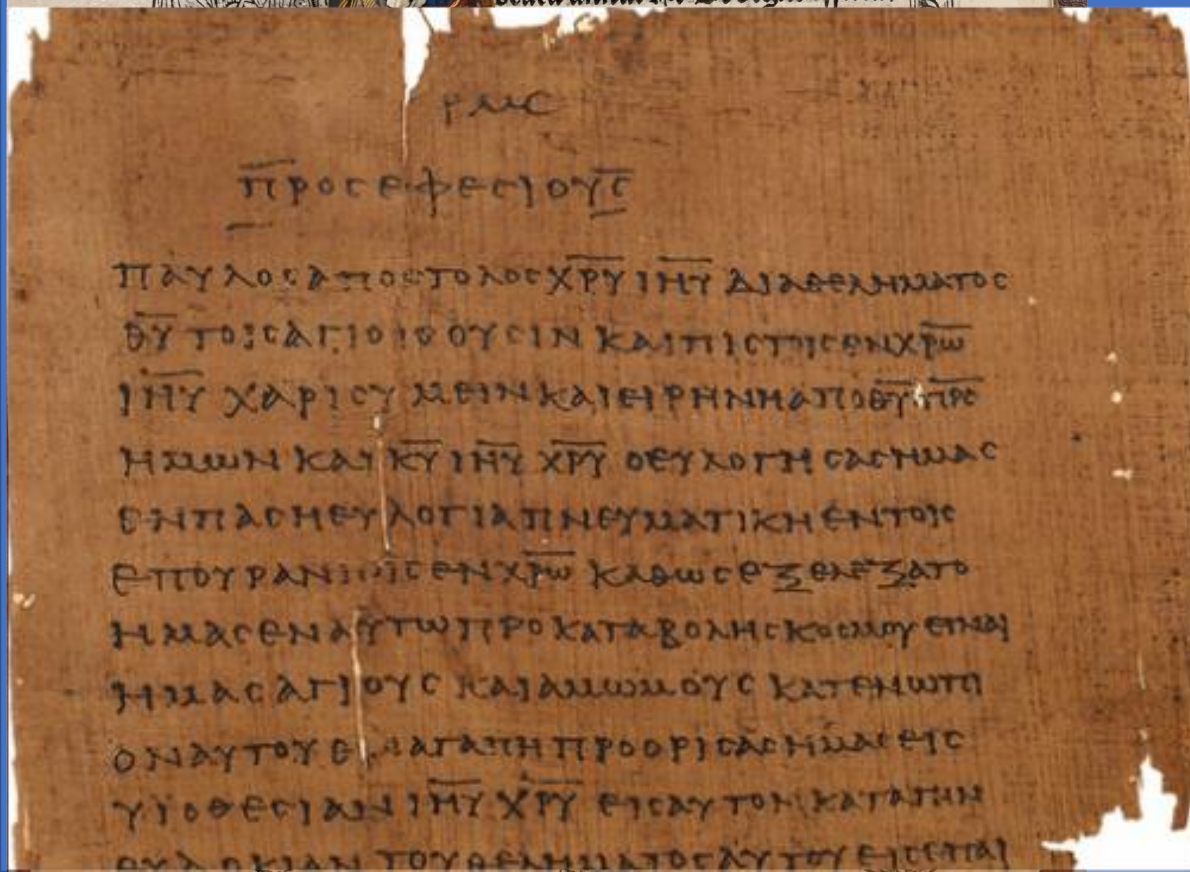 ΡΜϹ
Π̅ΡΟϹΕΦΕϹΙΟΥϹ̅
ΠΑΥΛΟϹΑΠΟϹΤΟΛΟϹΧ̅Ρ̅Υ̅ Ι̅Η̅Υ̅ ΔΙΑΘΕΛΗΜΑΤΟϹ
Θ̅Υ̅ ΤΟΙϹΑΓΙΟΙϹΟΥϹΙΝ ΚΑΙΠΙϹΤΟΙϹΕΝΧ̅Ρ̅Ω̅
Ι̅Η̅Υ̅ ΧΑΡΙϹΥΜΕΙΝΚΑΙΕΙΡΗΝΗΑΠΟΘ̅Υ̅Π̅Ρ̅Ϲ̅
ΗΜΩΝ ΚΑΙ Κ̅Υ̅ Ι̅Η̅Υ̅ Χ̅Ρ̅Υ̅ ΟΕΥΛΟΓΗϹΑϹΗΜΑϹ
ΕΝΠΑϹΗΕΥΛΟΓΙΑΠΝΕΥΜΑΤΙΚΗΕΝΤΟΙϹ
ΕΠΟΥΡΑΝΙΟΙϹΕΝΧ̅Ρ̅Ω̅ ΚΑΘΩϹΕΞΕΛΕΞΑΤΟ
ΗΜΑϹΕΝΑΥΤΩΠΡΟΚΑΤΑΒΟΛΗϹΚΟϹΜΟΥΕΙΝΑΙ
ΗΜΑϹΑΓΙΟΥϹ ΚΑΙΑΜΩΜΟΥϹ ΚΑΤΕΝΩΠΙ
ΟΝΑΥΤΟΥΕΝΑΓΑΠΗΠΡΟΟΡΙϹΑϹΗΜΑϹΕΙϹ
ΥΙΟΘΕϹΙΑΝ Ι̅Η̅Υ̅ Χ̅Ρ̅Υ̅ ΕΙϹΑΥΤΟΝΚΑΤΑΤΗΝ
ΕΥΔΟΚΙΑΝ ΤΟΥΘΕΛΗΜΑΤΟϹΑΥΤΟΥΕΙϹΕΠΑΙ